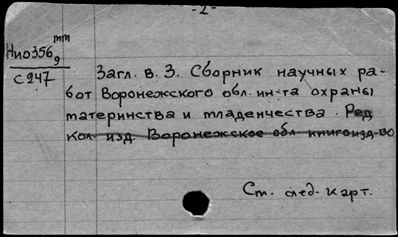 -2-
Нио356 9 тт
С247
Загл. в. 3. Сборник научных ра-
бот Воронежского обл. ин-та охраны
материнства и младенчества. Ред
кол. изд. Воронежское обл книгоизд-во
Ст. след. карт.